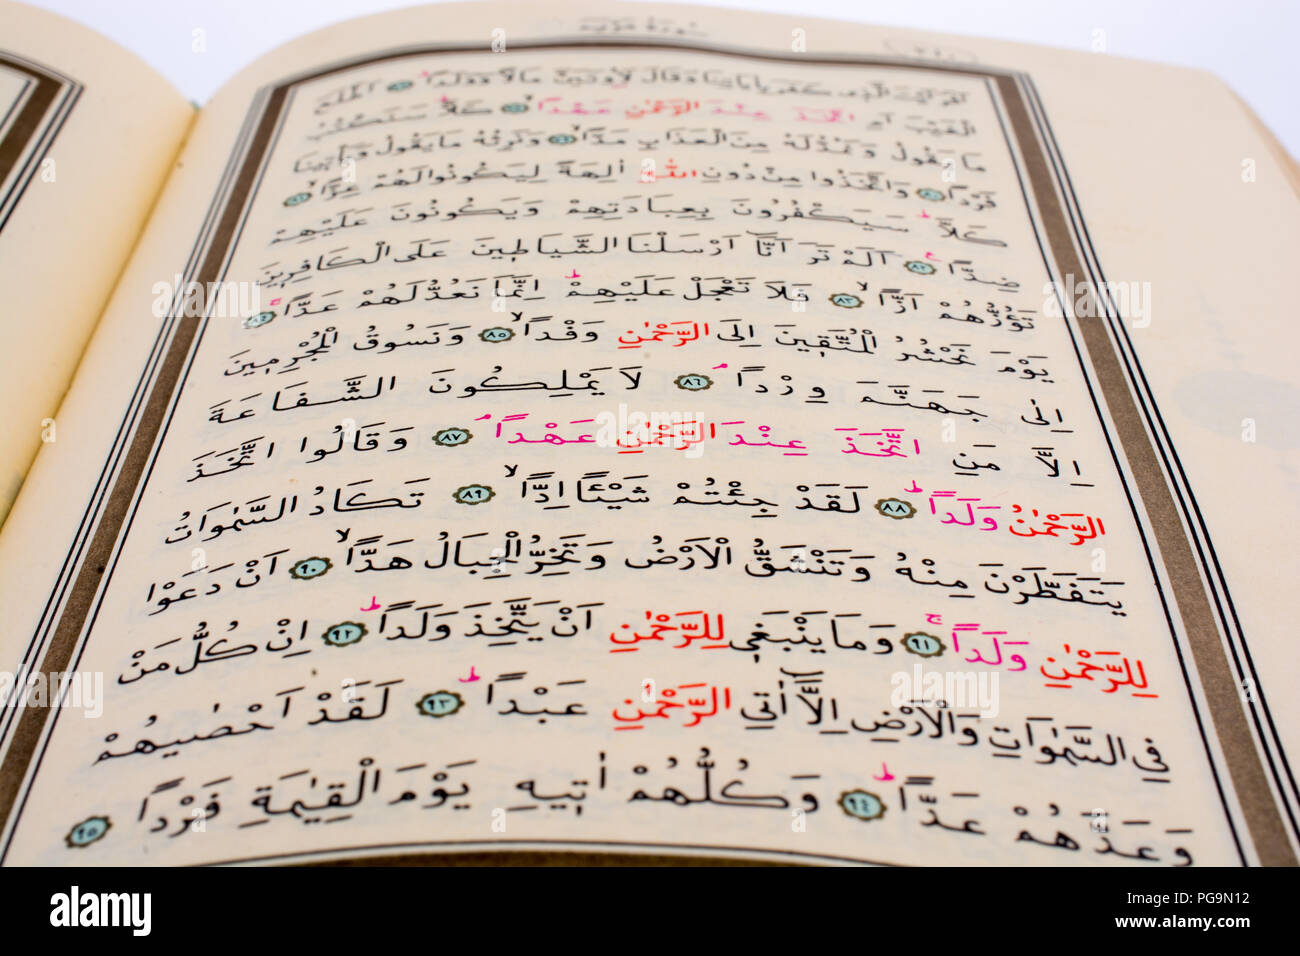 سُورَةُ مَرْيَمَ
اَفَرَاَيْتَ الَّذٖى كَفَرَ بِاٰيَاتِنَا وَقَالَ لَاُوتَيَنَّ مَالًا وَوَلَدًاۜ ﴿٧٧﴾ اَطَّلَعَ
الْغَيْبَ اَمِ اتَّخَذَ عِنْدَ الرَّحْمٰنِ عَهْدًاۙ ﴿٧٨﴾ كَلَّاۜ سَنَكْتُبُ
مَا يَقُولُ وَنَمُدُّ لَهُ مِنَ الْعَذَابِ مَدًّاۙ ﴿٧٩﴾ وَنَرِثُهُ مَا يَقُولُ وَيَاْتٖينَا
فَرْدًا ﴿٨٠﴾ وَاتَّخَذُوا مِنْ دُونِ اللّٰهِ اٰلِهَةً لِيَكُونُوا لَهُمْ عِزًّاۙ ﴿٨١﴾
كَلَّاۜ سَيَكْفُرُونَ بِعِبَادَتِهِمْ وَيَكُونُونَ عَلَيْهِمْ
ضِدًّاۚ ﴿٨٢﴾ اَلَمْ تَرَ اَنَّٓا اَرْسَلْنَا الشَّيَاطٖينَ عَلَى الْكَافِرٖينَ
تَؤُزُّهُمْ اَزًّاۙ ﴿٨٣﴾ فَلَا تَعْجَلْ عَلَيْهِمْۜ اِنَّمَا نَعُدُّ لَهُمْ عَدًّاۚ ﴿٨٤﴾
يَوْمَ نَحْشُرُ الْمُتَّقٖينَ اِلَى الرَّحْمٰنِ وَفْدًاۙ ﴿٨٥﴾ وَنَسُوقُ الْمُجْرِمٖينَ
اِلٰى جَهَنَّمَ وِرْدًاۢ ﴿٨٦﴾ لَا يَمْلِكُونَ الشَّفَاعَةَ
اِلَّا مَنِ اتَّخَذَ عِنْدَ الرَّحْمٰنِ عَهْدًاۢ ﴿٨٧﴾ وَقَالُوا اتَّخَذَ
الرَّحْمٰنُ وَلَدًاۜ ﴿٨٨﴾ لَقَدْ جِئْتُمْ شَيْـًٔا اِدًّاۙ ﴿٨٩﴾ تَكَادُ السَّمٰوَاتُ
يَتَفَطَّرْنَ مِنْهُ وَتَنْشَقُّ الْاَرْضُ وَتَخِرُّ الْجِبَالُ هَدًّاۙ ﴿٩٠﴾ اَنْ دَعَوْا
لِلرَّحْمٰنِ وَلَدًاۚ ﴿٩١﴾ وَمَا يَنْبَغٖى لِلرَّحْمٰنِ اَنْ يَتَّخِذَ وَلَدًاۜ ﴿٩٢﴾ اِنْ كُلُّ مَنْ
فِى السَّمٰوَاتِ وَالْاَرْضِ اِلَّٓا اٰتِى الرَّحْمٰنِ عَبْدًاۜ ﴿٩٣﴾ لَقَدْ اَحْصٰيهُمْ
وَعَدَّهُمْ عَدًّاۜ ﴿٩٤﴾ وَكُلُّهُمْ اٰتٖيهِ يَوْمَ الْقِيٰمَةِ فَرْدًا ﴿٩٥﴾
alamy
alamy stock photo
PG9N12
www.alamy.com